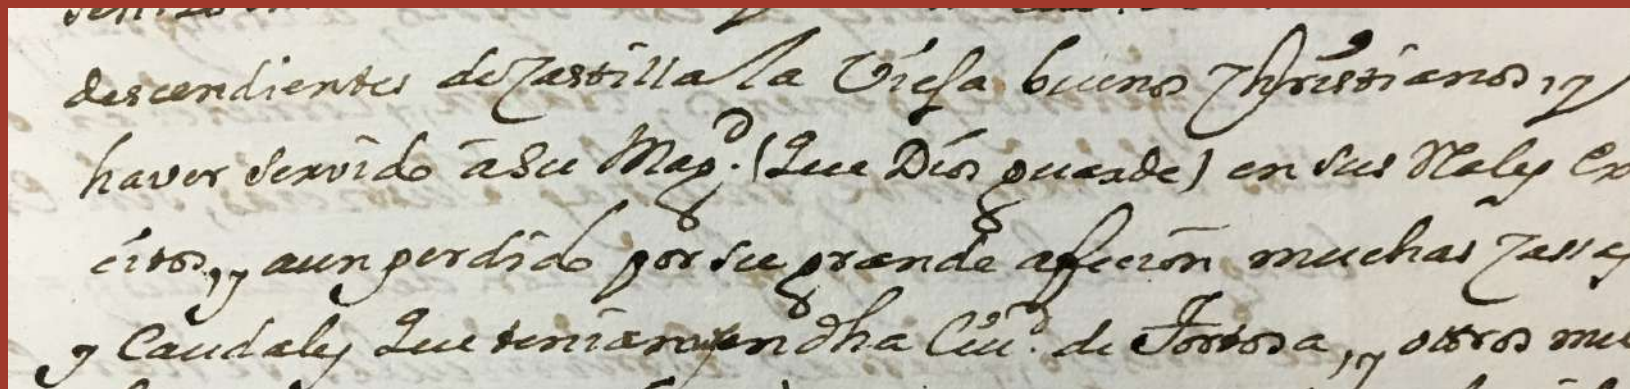 descendientes de Castilla la Vieja buenos Christianos, y
haver servido â Su Magd. (Que Dios guarde) en sus Rales Ex
citos, y aun perdido por su grande afecion muchas Cassas
y Caudales Que tenian en dha Ciud. de Tortosa, y otros mu